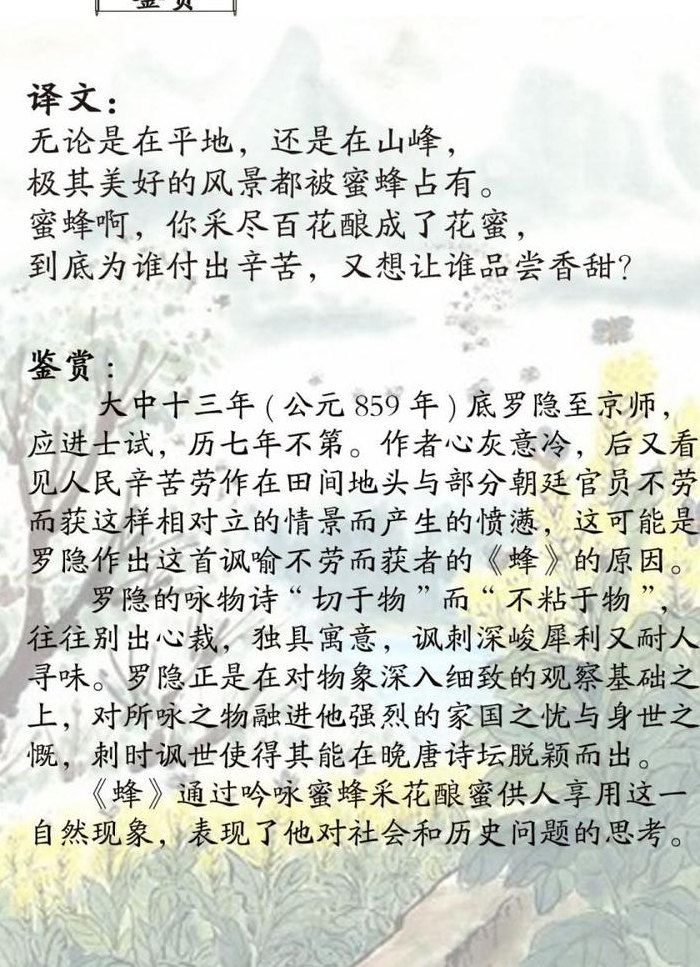 鉴赏
译文：
无论是在平地，还是在山峰，
极其美好的风景都被蜜蜂占有。
蜜蜂啊，你采尽百花酿成了花蜜，
到底为谁付出辛苦，又想让谁品尝香甜？
鉴赏：
大中十三年（公元 859 年）底罗隐至京师，
应进士试，历七年不第。作者心灰意冷，后又看
见人民辛苦劳作在田间地头与部分朝廷官员不劳
而获这样相对立的情景而产生的愤懑，这可能是
罗隐作出这首讽喻不劳而获者的《蜂》的原因。
罗隐的咏物诗“切于物”而“不粘于物”，
往往别出心裁，独具寓意，讽刺深峻犀利又耐人
寻味。罗隐正是在对物象深入细致的观察基础之
上，对所咏之物融进他强烈的家国之忧与身世之
慨，刺时讽世使得其能在晚唐诗坛脱颖而出。
《蜂》通过吟咏蜜蜂采花酿蜜供人享用这一
自然现象，表现了他对社会和历史问题的思考。